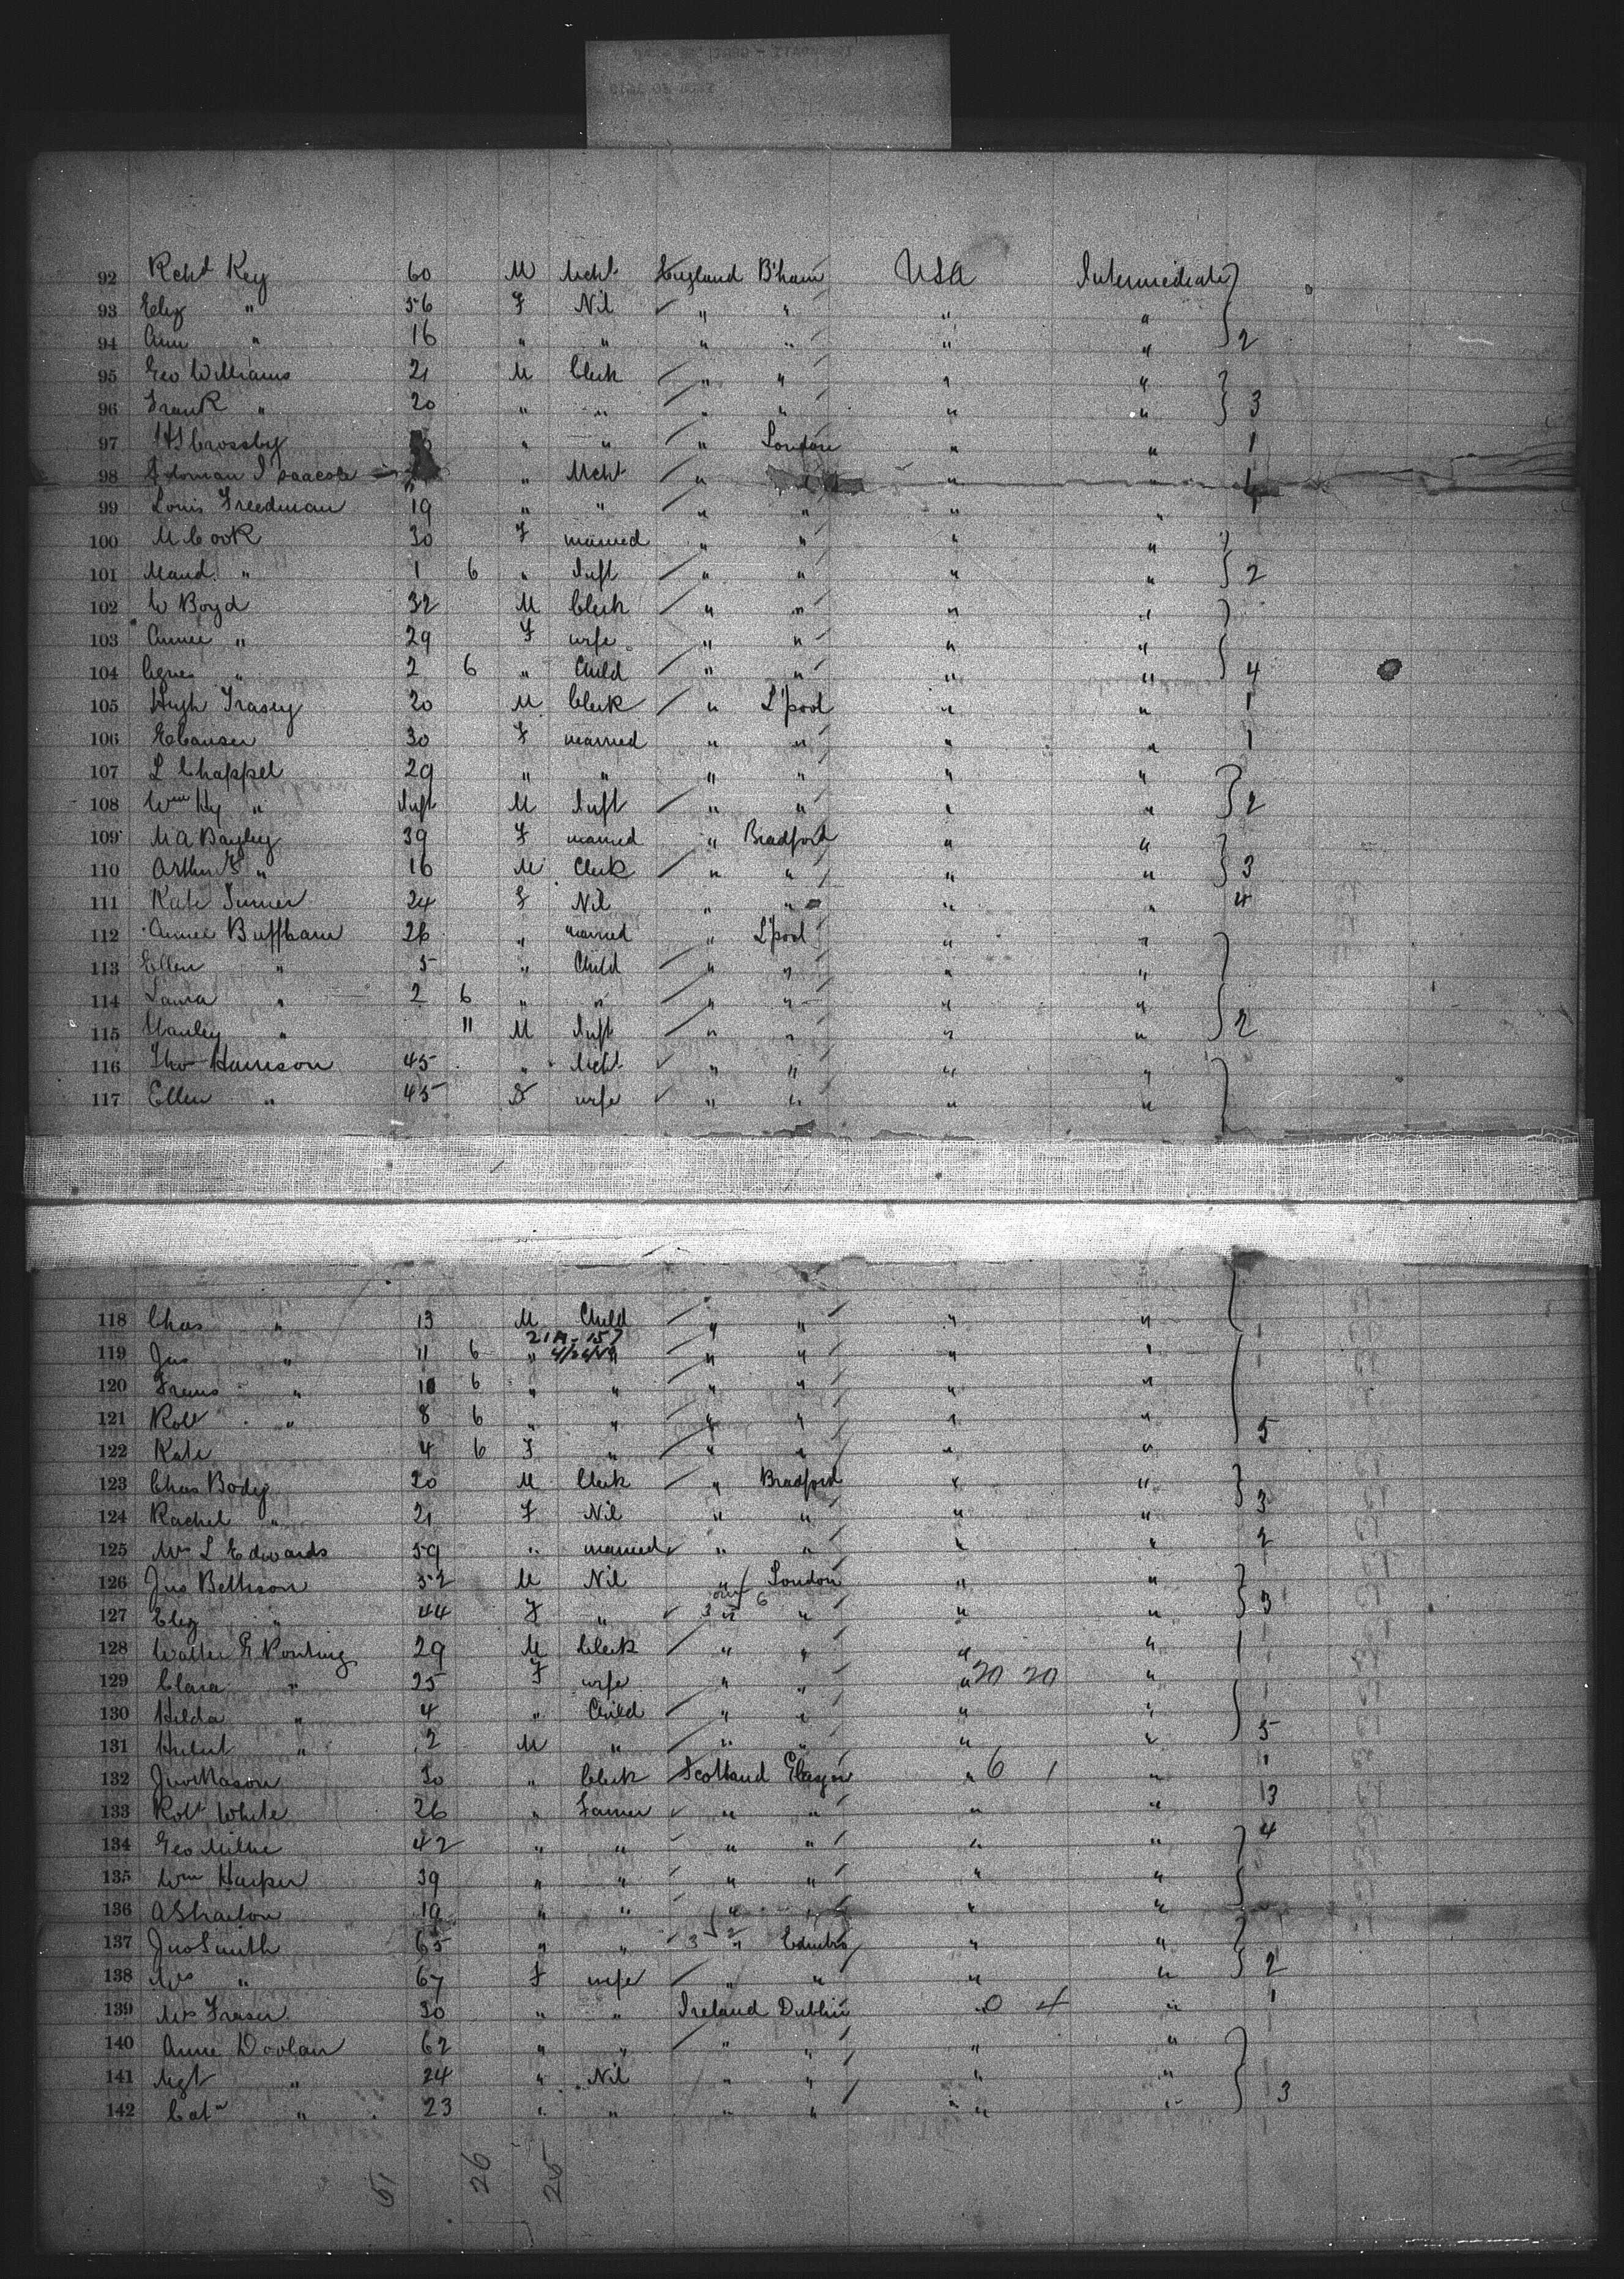 92 Rchd Key 60 M Mcht England B'ham USA Intermediate
93 Eliz " 56 F Nil " " " "
94 Ann " 16 " " " " " " 2
95 Geo Williams 21 M Clerk " " " "
96 Frank " 20 " " " " " " 3
97 Crossby " " " London " " 1
98 " Mcht " " " 1
99 Louis Freedman 19 " " " " " " 1
100 M Cook 30 F married " " " "
101 Maud " 1 6 " Inft " " " " 2
102 W Boyd 32 M Clerk " " " "
103 Annie " 29 F wife " " " "
104 Agnes " 2 6 " Child " " " " 4
105 Hugh Frasey 20 M Clerk " L'pool " " 1
106 30 F married " " " " 1
107 L Chappel 29 " " " " " "
108 Wm Hy " Inft M Inft " " " " 2
109 M A Bayley 39 F married " Bradford " "
110 Arthur E " 16 M Clerk " " " " 3
111 Kate Turner 24 F Nil " " " " 4
112 Annie Buffham 26 " married " L'pool " "
113 Ellen " 5 " Child " " " "
114 Laura " 2 6 " " " " " "
115 " 11 M Inft " " " " 2
116 Thos Harrison 45 " Mcht " " " "
117 Ellen " 45 F wife " " " "
118 Chas " 13 M Child " " " "
21A-157
119 Jno " 11 6 " " " " " "
120 " 10 6 " " " " " "
121 Robt " 8 6 " " " " " " 5
122 Kate 4 6 F " " " " "
123 Chas Body 20 M Clerk " Bradford " "
124 Rachel " 21 F Nil " " " " 3
125 Mrs L Edwards 59 " married " " " " 2
126 Jno 52 M Nil " London " "
127 Eliz " 44 F " 3 " 6 " " " 3
128 Walter E Ponting 29 M Clerk " " " "
129 Clara " 25 F wife " " " 20 20 "
130 Hilda " 4 " Child " " " "
131 Hubert " 2 M " " " " " 5
132 Jno Mason 30 " Clerk Scotland Glasgow " 6 1 " 1
133 Robt White 26 " Farmer " " " " 13
134 Geo Milne 42 " " " " " " 4
135 Wm Harper 39 " " " " " "
136 19 " " " " " "
137 Jno Smith 65 " " 3 2 " Edinbro " "
138 Mrs " 67 F wife " " " " 2
139 Mrs Fraser 30 " " Ireland Dublin " 0 4 " 1
140 Annie Doolan 62 " " " " " "
141 Mgt " 24 " Nil " " " " 3
142 Cath " 23 " " " " " "
51 26 25